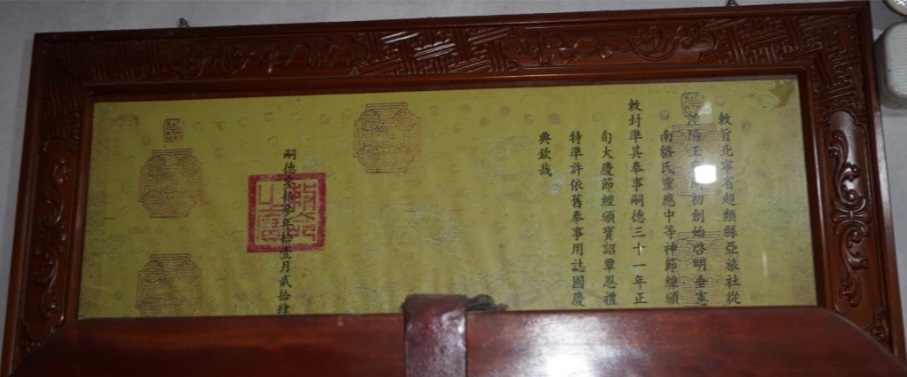 敕旨北寧省超類縣亞旅社從
王初創始啓明垂憲
南絡氏靈應中等神節經頒
敕封準其奉事嗣德三十一年正
旬大慶節經頒寶詔覃恩禮
特準許依舊奉事用誌國慶
典欽哉
嗣德拾年拾月貳拾肆